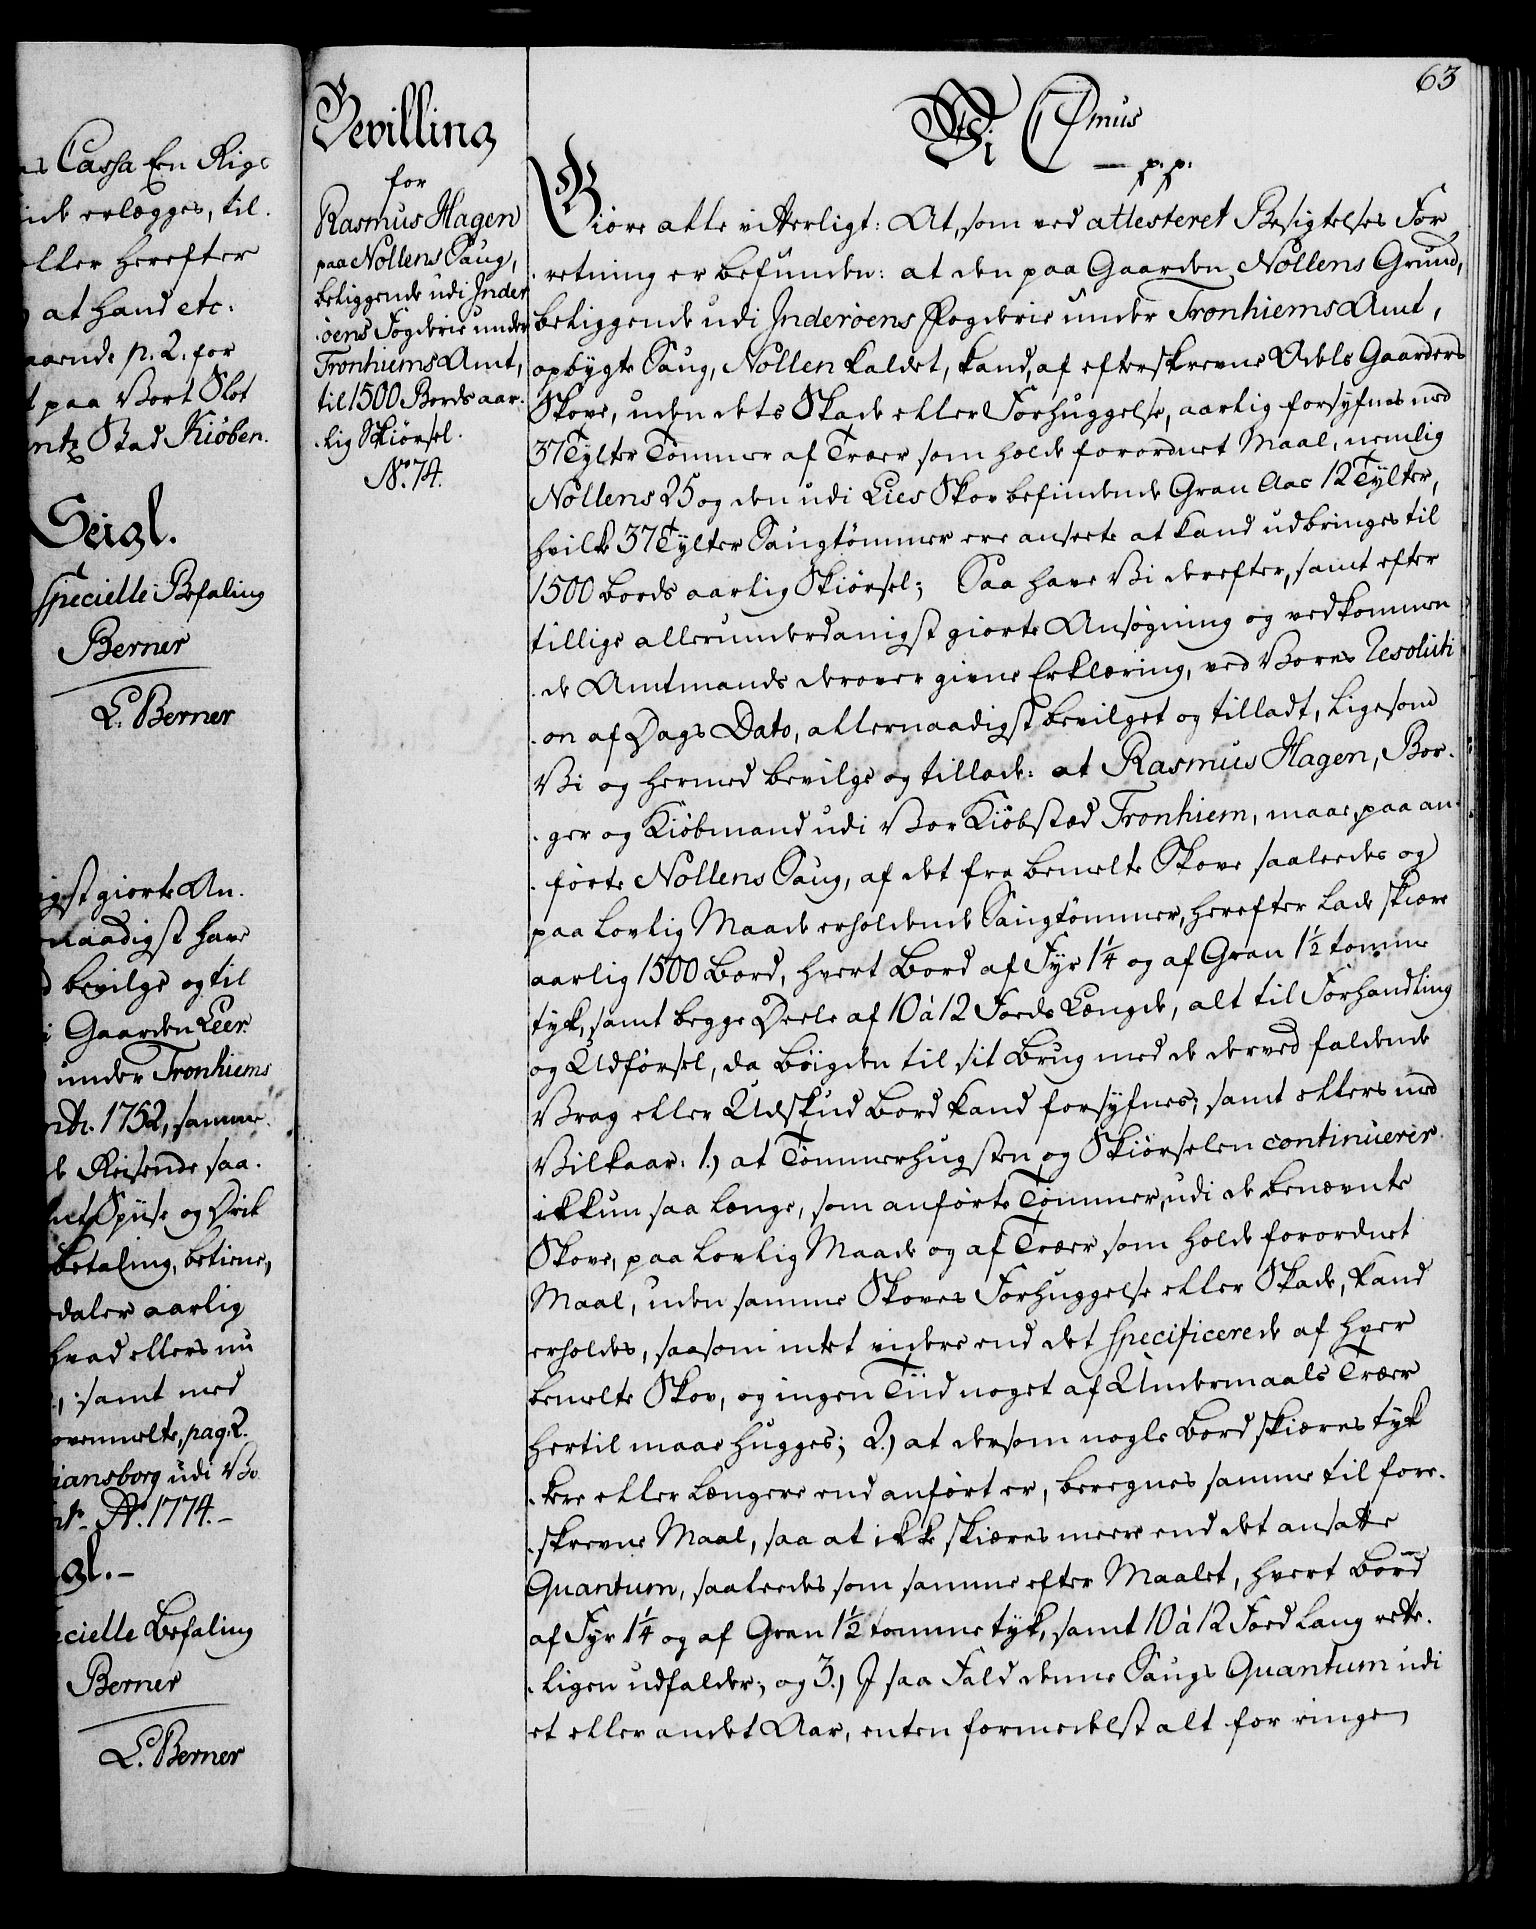 ns Cassa Een Rigs
inde erlægges, til.
eller herefter
at hand etc.
aarende p. 2. for
t paa Vort Slot
ntz Stad Kiøben.
Seigl.
specielle Befaling
Berner
L. Berner
igst giorte An.
naadigst have
d bevilge og til
i Gaarden Leer
under Tronhiems
ntr. 1752, samme
de Reisende saa.
net Spiise og Drik
betaling, betiene,
daler aarlig
hvad ellers nu
, samt med
ovenmelte, pag. 2.
iansborg udi Vo
ntr. Ao. 1774.-
gl.-
ecielle Befaling
Berner
L. Berner
63
Bevilling
for
Rasmus Hagen
paa Nollens Saug,
beliggende udi Inder
øens Fogderie under
Tronhiems Amt,
til 1500 Bords aar.
.lig Skiørsel.
No. 74.
Vi C7mus
— p. p.
Giøre alle vitterligt: At, som ved attesteret Besigtelses For
.retning er befunden: at den paa Gaarden Nollens Grund,
beliggende udi Inderøens Fogderie under Tronhiems Amt,
opbygte Saug, Nollen kaldet, kand, af efterskrevne Odels Gaarders
Skove, uden dets Skade eller Forhuggelse, aarlig forsyfnes med
37 Tylter Tømmer af Træer som holde forordnet Maal, nemlig
Nollens 25 og den udi Lies Skov befindende Gran Aas 12 Tylter,
hvilke 37 Tylter Saugtømmer ere anseete at kand udbringes til
1500 bords aarlig Skiørsel; Saa have Vi derefter, samt efter
tillige allerunderdanigst giorte Ansøgning og vedkommen
.de Amtmands derover givne Erklæring, ved Vores Resoluti
.on af Dags Dato, allernaadigst bevilget og tilladt, ligesom
Vi og hermed bevilge og tillade: at Rasmus Hagen, Bor.
.ger og Kiøbmand udi Vor Kiøbstæd Tronhiem, maae, paa an.
.førte Nollens Saug, af det fra bemelte Skove saaledes og
paa lovlig Maade erholdende Saugtømmer, herefter lade skiære
aarlig 1500 Bord, hvert Bord af Fyr 1¼ og af Gran 1½ tomme
tyk, samt begge Deele af 10 à 12 Foeds Længde, alt til Forhandling
og Udførsel, da bøigden til sit Brug med de derved faldende
Vrag eller Udskud Bord kand forsyfnes; samt ellers med
Vilkaar: 1.) at Tømmerhugsten og Skiørselen continuerer
ikkun saa længe, som anførte Tømmer, udi de benævnte
Skove, paa lovlig Maade og af Træer som holde forordnet
Maal, uden samme Skoves Forhuggelse eller Skade, kand
erholdes, saasom intet videre end det specificerede af hver
bemelte Skov, og ingen Tiid noget af Undermaals Træer
hertil maae hugges; 2.) at dersom nogle Bord skiæres tyk
.kere eller længere end anført er, beregnes samme til fore.
.skrevne Maal, saa at ikke skiæres meere end det ansatte
Quantum, saaledes som samme efter Maalet, hvert Bord
af Fyr 1¼ og af Gran 1½ tomme tyk, samt 10 à 12 Foed lang rette.
.ligen udfalder; og 3.) I saa Fald denne Saugs Quantum udi
et eller andet Aar, enten formedelst alt for ringe